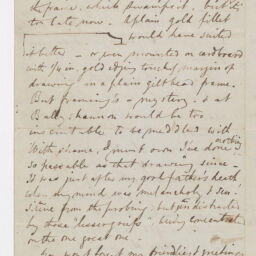 the frame, which
too late now. A plain gold fillet
would have suited
it better — or even mounted on cardboard
with ½ in. gold edging touching margin of
drawing in a plain gilt bead frame.
But framing is a mystery & at
Ballyshannon would be too
to be meddled with
With shame, I must own I've done nothing
so passable as that drawing since —
It was just after my good father's death
when my mind was melancholy & sen-
sitive from the probing, but undistracted
by those "lesser griefs", being concentrated
on the one great one —
friendliest greetings